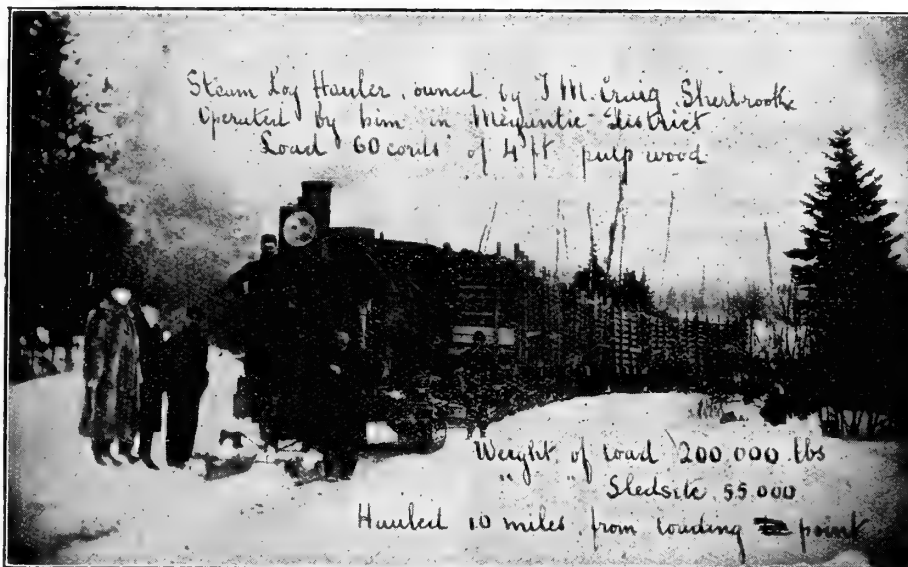 Steam Log Hauler, owned by T M. Craig Sherbrooke
Operated by him in Megantic District
Load 60 cords of 4 ft pulp wood
Weight of load 200.000 lbs
" " Sleds etc 55.000
Hauled 10 miles from loading point